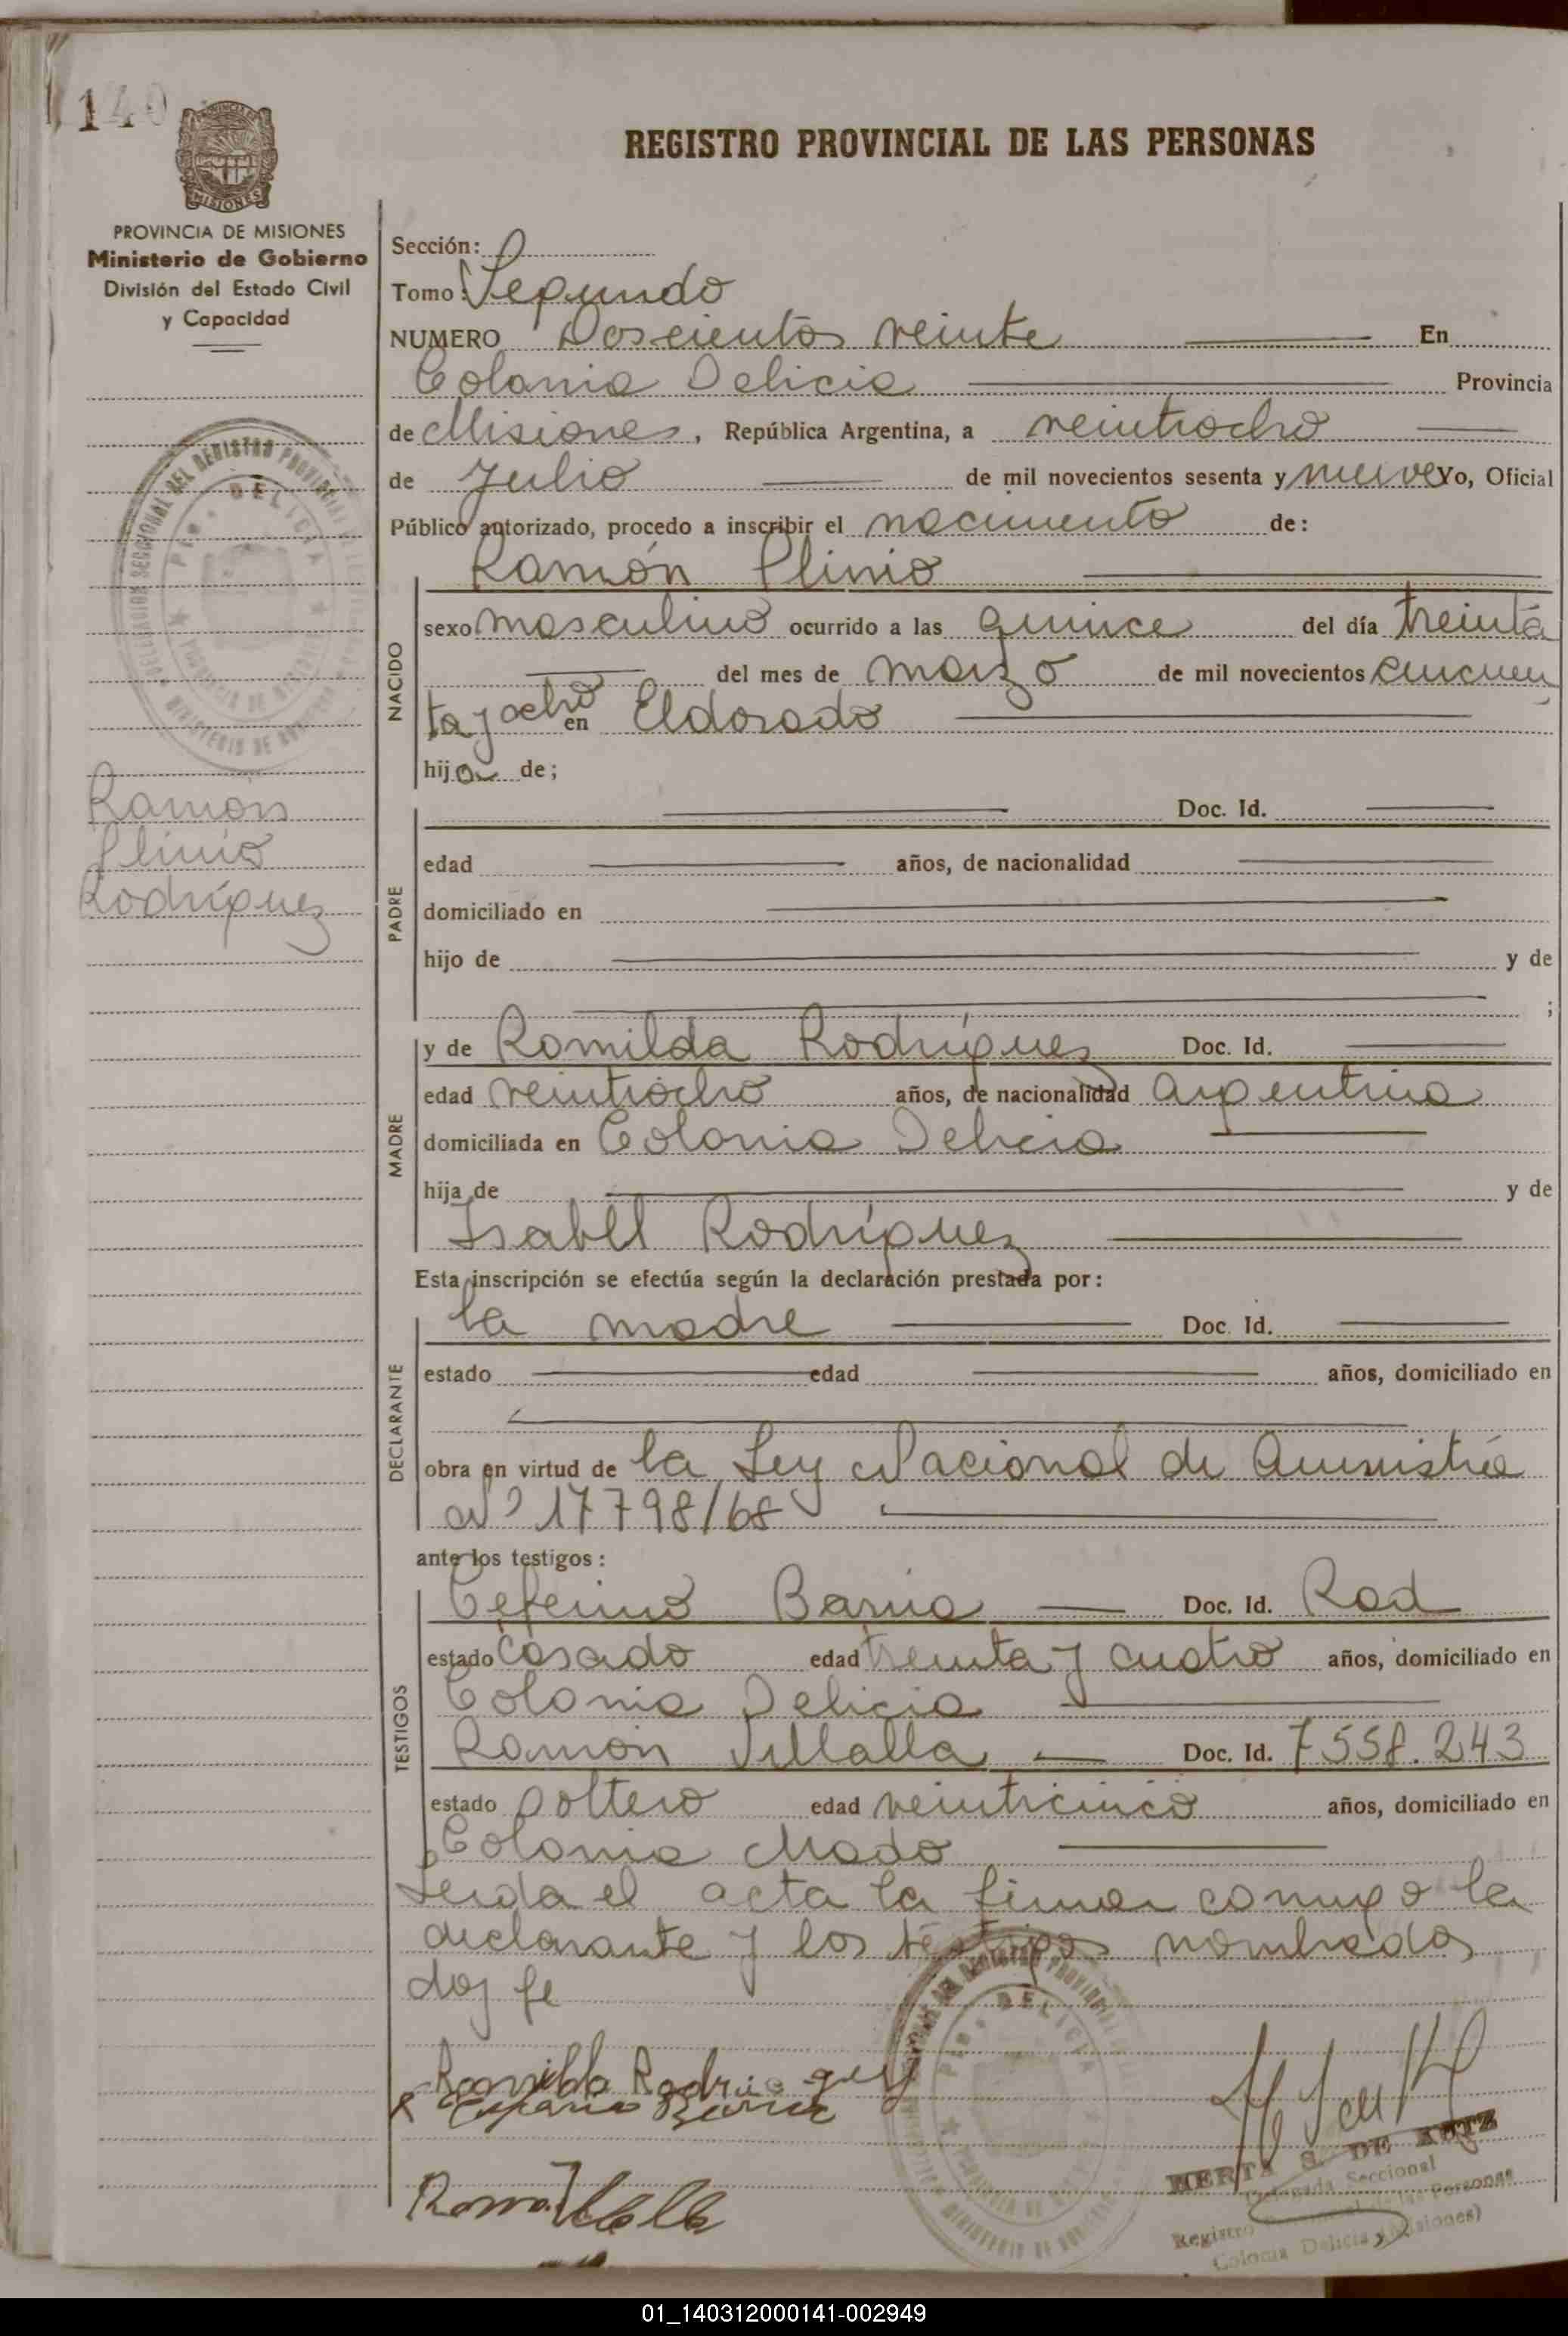 140
PROVINCIA DE MISIONES
Ministerio de Gobierno
División del Estado Civil
y Capacidad
Ramón
Plinio
Rodríguez
REGISTRO PROVINCIAL DE LAS PERSONAS
Sección:
Tomo: Segundo
NUMERO Doscientos veinte En
Colonia Delicia Provincia
de Misiones, República Argentina, a veintiocho
de Julio de mil novecientos sesenta y nueve Yo, Oficial
Público autorizado, procedo a inscribir el nacimiento de:
Ramón Plinio
NACIDO
sexo masculino ocurrido a las quince del día treinta
del mes de marzo de mil novecientos cincuen
ta y ocho en Eldorado
hijo de;
PADRE
Doc. Id.
edad años, de nacionalidad
domiciliado en
hijo de y de
;
MADRE
y de Romilda Rodríguez Doc. Id.
edad veintiocho años, de nacionalidad argentina
domiciliada en Colonia Delicia
hija de y de
Isabel Rodríguez
Esta inscripción se efectúa según la declaración prestada por:
DECLARANTE
la madre Doc. Id.
estado edad años, domiciliado en
obra en virtud de la Ley Nacional de Amnistía
Nº 17798/68
ante los testigos:
TESTIGOS
Ceferino Doc. Id. Rod
estado casado edad treinta y cuatro años, domiciliado en
Colonia Delicia
Ramón Villalla Doc. Id. 7558.243
estado soltero edad veinticinco años, domiciliado en
Colonia Mado
Leida el acta la firman conmigo la
declarante y los testigos nombrados
doy fe
Romilda Rodriguez
HERTA S. DE KOTZ
Delegada Seccional
Registro Provincial de las Personas
Colonia Delicia (Misiones)
DELICIA
01_140312000141-002949